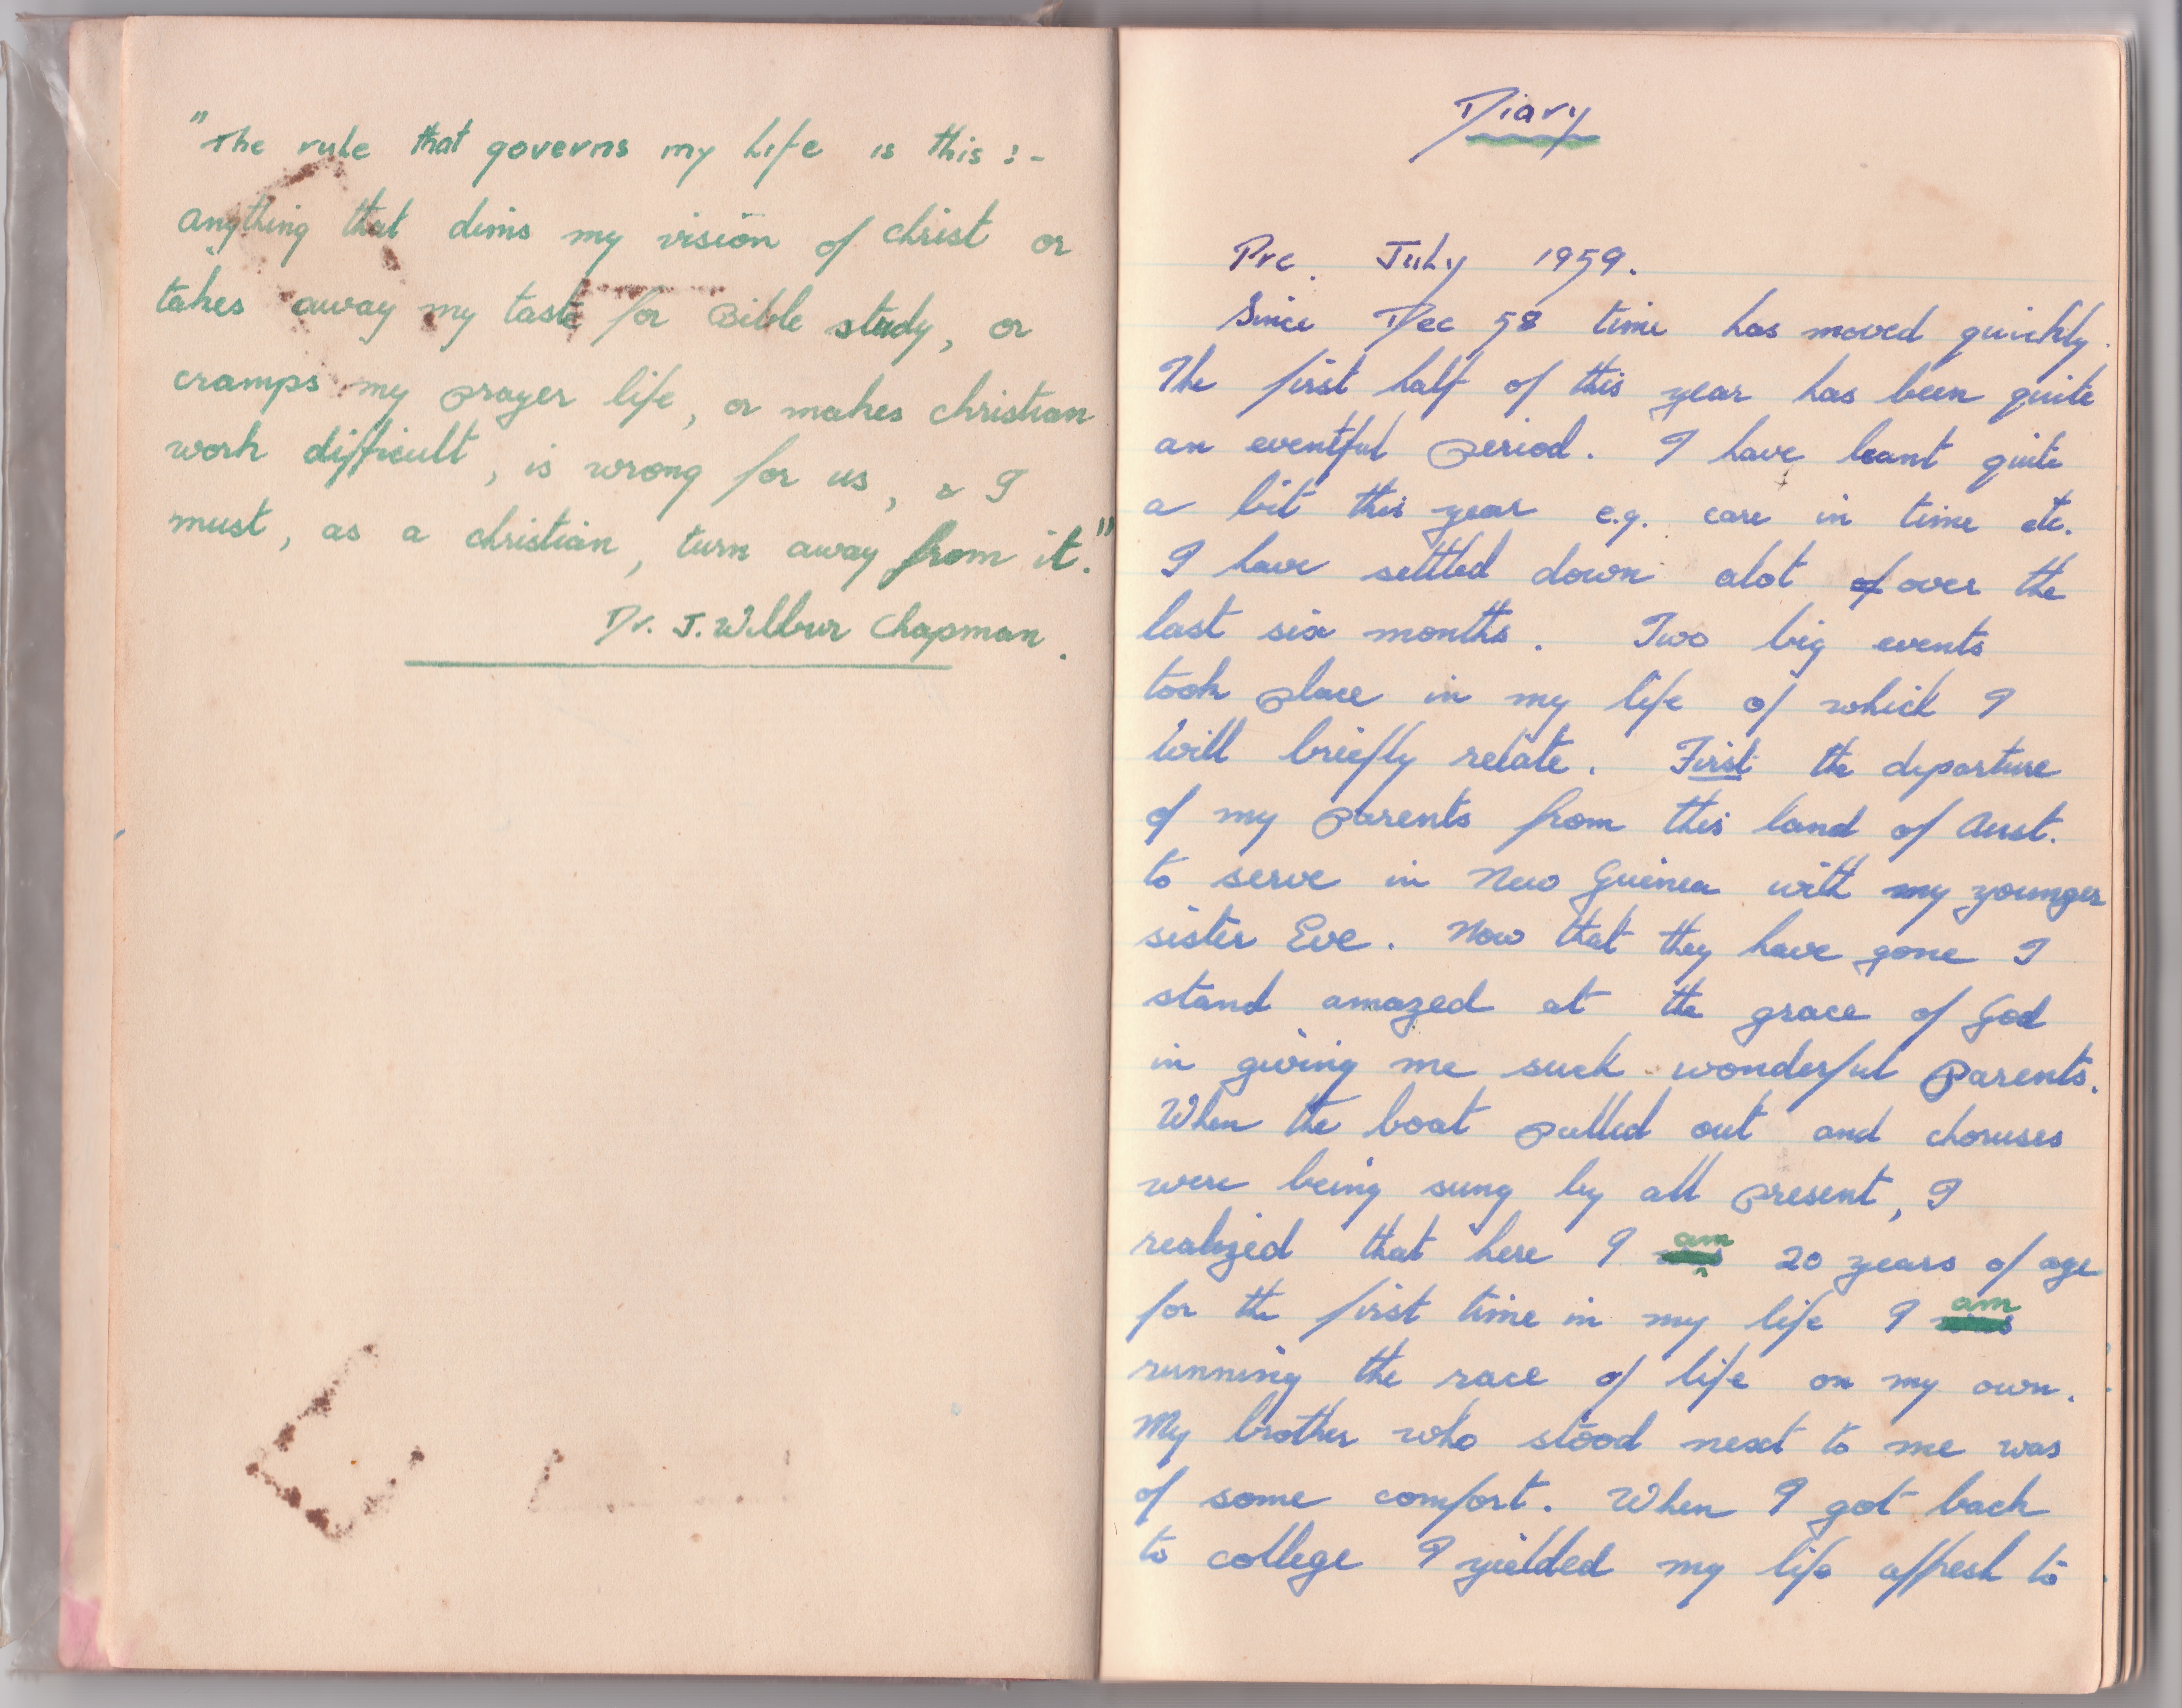 "The rule that governs my life is this :-
anything that dims my vision of christ or
takes away my taste for Bible study, or
cramps my prayer life, or makes christian
work difficult, is wrong for us, & I
must, as a christian, turn away from it."
Dr. J. Wilbur Chapman.
Diary
Pre. July 1959.
Since Dec 58 time has moved quickly.
The first half of this year has been quite
an eventful period. I have leant quite
a bit this year e.g. care in time etc.
I have settled down alot of over the
last six months. Two big events
took place in my life of which I
will briefly relate. First the departure
of my parents from this land of Aust.
to serve in New Guinea with my younger
sister Eve. Now that they have gone I
stand amazed at the grace of God
in giving me such wonderful parents.
When the boat pulled out and choruses
were being sung by all present, I
realized that here I am 20 years of age
for the first time in my life I am
running the race of life on my own.
My brother who stood next to me was
of some comfort. When I got back
to college I yielded my life affresh to